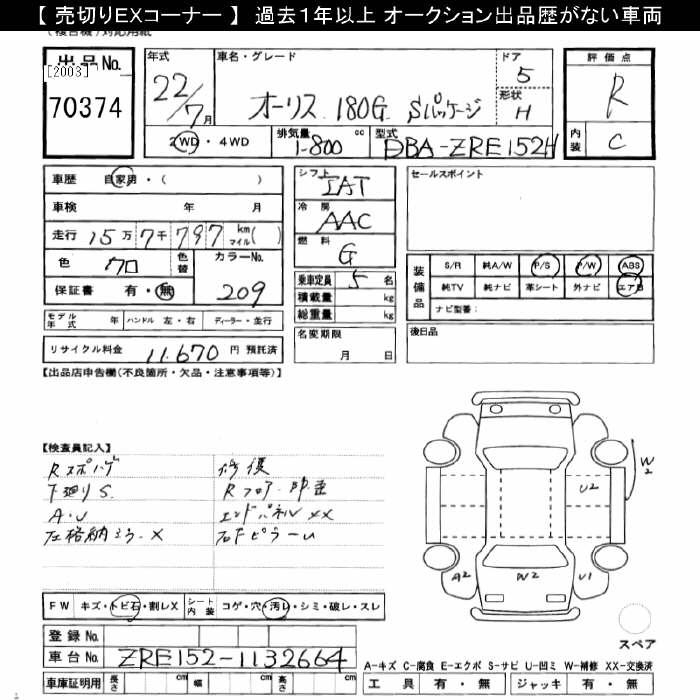 【 売切りEXコーナー 】 過去１年以上 オークション出品歴がない車両
(複合機)対応用紙
出品No.
[2003]
70374
年式
22/7月
車名・グレード
オーリス 180G Sパッケージ
ドア
5
形状
H
評価点
R
内装
C
2WD・4WD
排気量 1-800 cc
型式 DBA-ZRE152H
車歴 自家用・( )
車検 年 月
走行 15万7千797 km マイル( )
色 クロ
色替
カラーNo. 209
保証書 有・無
モデル年式 年
ハンドル 左・右
ディーラー・並行
リサイクル料金 11,670 円 預託済
シフト
IAT
冷房
AAC
燃料
G
乗車定員 5 名
積載量 kg
総重量 kg
名変期限
月 日
セールスポイント
装備品
S/R 純A/W P/S P/W ABS
純TV 純ナビ 革シート 外ナビ エアB
ナビ型番:
後日品
【出品店申告欄(不良箇所・欠品・注意事項等)】
【検査員記入】
Rスポハゲ
下廻りS
A・U
左格納ミラーX
修復
Rフロア
エンドパネルXX
右Fピラー
W2
U2
A2
W2
U1
FW キズ・トビ石・割レX
シート内装 コゲ・穴・汚レ・シミ・破レ・スレ
登録No.
車台No. ZRE152-1132664
車庫証明用 長さ cm 幅 cm 高さ cm
スペア
A-キズ C-腐食 E-エクボ S-サビ U-凹ミ W-補修 XX-交換済
工具 有・無 ジャッキ 有・無